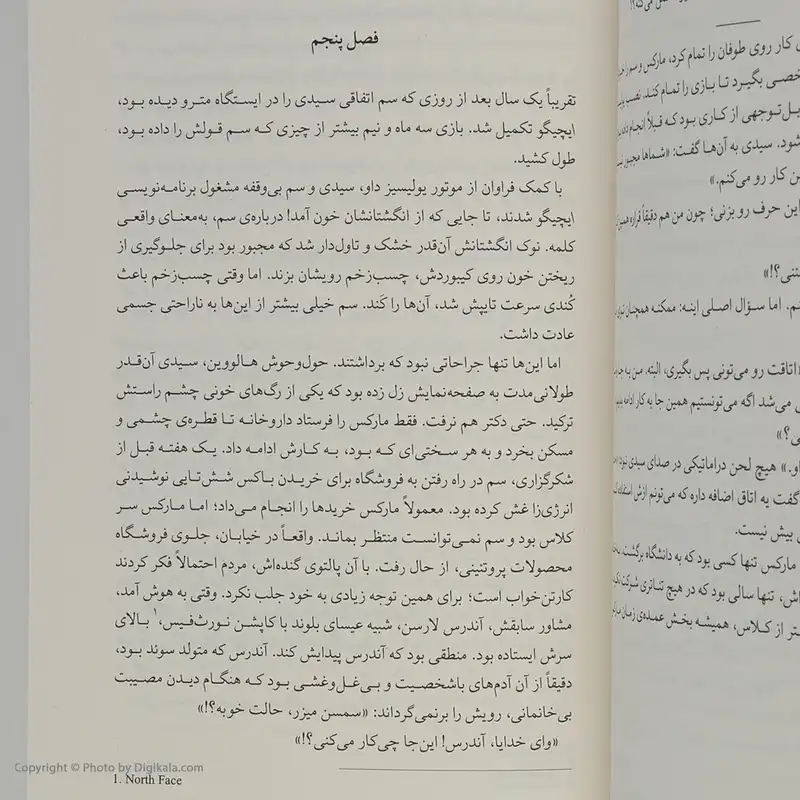 فصل پنجم
تقریباً یک سال بعد از روزی که سم اتفاقی سیدی را در ایستگاه مترو دیده بود،
ایچیگو تکمیل شد. بازی سه ماه و نیم بیشتر از چیزی که سم قولش را داده بود،
طول کشید.
با کمک فراوان از موتور یولیسیز داو، سیدی و سم بی‌وقفه مشغول برنامه‌نویسی
ایچیگو شدند، تا جایی که از انگشتانشان خون آمد! درباره‌ی سم، به‌معنای واقعی
کلمه. نوک انگشتانش آن‌قدر خشک و تاول‌دار شد که مجبور بود برای جلوگیری از
ریختن خون روی کیبوردش، چسب‌زخم رویشان بزند. اما وقتی چسب‌زخم باعث
کُندی سرعت تایپش شد، آن‌ها را کَند. سم خیلی بیشتر از این‌ها به ناراحتی جسمی
عادت داشت.
اما این‌ها تنها جراحاتی نبود که برداشتند. حول‌وحوش هالووین، سیدی آن‌قدر
طولانی‌مدت به صفحه‌نمایش زل زده بود که یکی از رگ‌های خونی چشم راستش
ترکید. حتی دکتر هم نرفت. فقط مارکس را فرستاد داروخانه تا قطره‌ی چشمی و
مسکن بخرد و به هر سختی‌ای که بود، به کارش ادامه داد. یک هفته قبل از
شکرگزاری، سم در راه رفتن به فروشگاه برای خریدن باکس شش‌تایی نوشیدنی
انرژی‌زا غش کرده بود. معمولاً مارکس خریدها را انجام می‌داد؛ اما مارکس سر
کلاس بود و سم نمی‌توانست منتظر بماند. واقعاً در خیابان، جلوی فروشگاه
محصولات پروتئینی، از حال رفت. با آن پالتوی گنده‌اش، مردم احتمالاً فکر کردند
کارتن‌خواب است؛ برای همین توجه زیادی به خود جلب نکرد. وقتی به هوش آمد،
مشاور سابقش، آندرس لارسن، شبیه عیسای بلوند با کاپشن نورث‌فیس،۱ بالای
سرش ایستاده بود. منطقی بود که آندرس پیدایش کند. آندرس که متولد سوئد بود،
دقیقاً از آن آدم‌های باشخصیت و بی‌غل‌وغشی بود که هنگام دیدن مصیبت
بی‌خانمانی، رویش را برنمی‌گرداند: «سمسن میزر، حالت خوبه؟!»
«وای خدایا، آندرس! این‌جا چی‌کار می‌کنی؟!»
1. North Face
Copyright © Photo by Digikala.com
کار روی طوفان را تمام کرد، مارکس و سم
بگیرد تا بازی را تمام کند.
توجهی از کاری بود که قبلاً انجام
شود. سیدی به آن‌ها گفت: «شماها مجبور
کار رو می‌کنم.»
این حرف رو بزنی؛ چون من هم دقیقاً قراره
اما سؤال اصلی اینه: ممکنه همچنان
اتاقت رو می‌تونی پس بگیری، البته. من
می‌شد اگه می‌تونستیم همین جا به کار
هیچ لحن دراماتیکی در صدای سیدی نبود
گفت یه اتاق اضافه داره که می‌تونم ازش
بیش نیست.
مارکس تنها کسی بود که به دانشگاه برگشت.
تنها سالی بود که در هیچ تئاتری شرکت
از کلاس، همیشه بخش عمده‌ی زمان